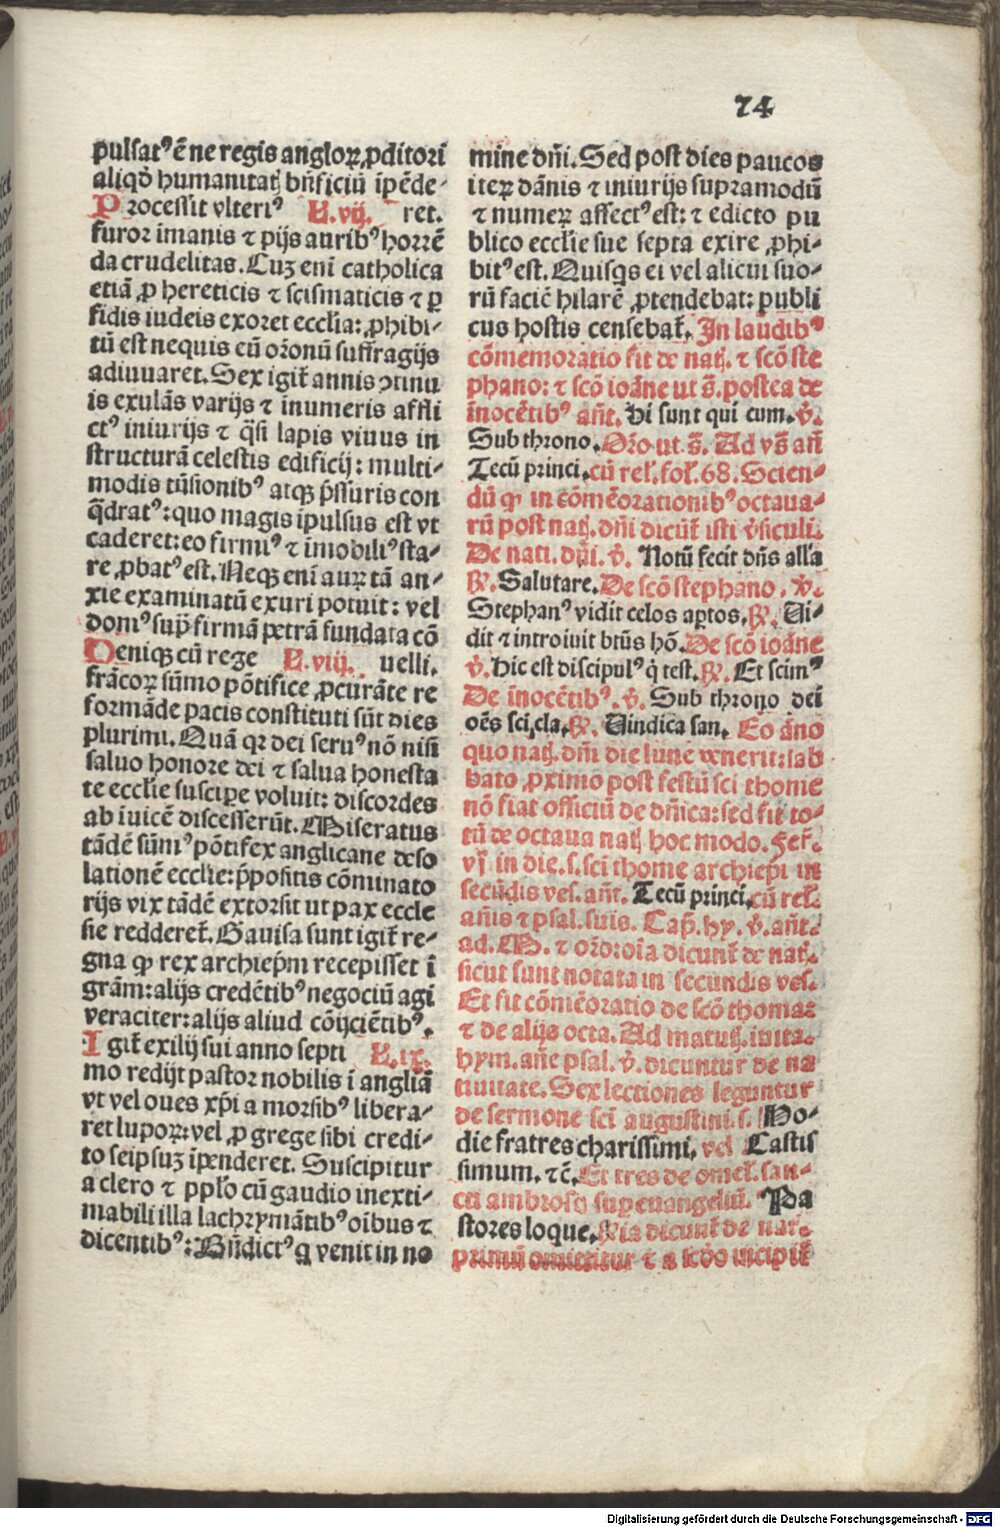 74
pulsatꝰ ē ne regis angloꝝ ꝓditori
aliqđ humanitatꝭ bn̄ficiū īpēde⸗
Processit vlteriꝰ L.vij. ret.
furor īmanis ⁊ pijs auribꝰ horrē
da crudelitas. Cuꝫ eni catholica
etiā ꝓ hereticis ⁊ scismaticis ⁊ ꝑ
fidis iudeis exoret eccl̄ia: ꝓhibi⸗
tū est nequis cū or̄onū suffragijs
adiuuaret. Sex igit̄ annis ↄtinu
is exulās varijs ⁊ īnumeris affli
ctꝰ iniurijs ⁊ q̄si lapis viuus in
structurā celestis edificij: multi⸗
modis tūsionibꝰ atqꝫ p̄ssuris con
q̄dratꝰ: quo magis īpulsus est vt
caderet: eo firmiꝰ ⁊ īmobiliꝰ sta⸗
re ꝓbatꝰ est. Neqꝫ eni auꝝ tā an⸗
xie examinatū exuri potuit: vel
domꝰ suꝑ firmā petrā fundata cō
Deniqꝫ cū rege L.viij. uelli.
frācoꝝ sūmo pōtifice ꝓcurāte re
formāde pacis constituti sūt dies
plurimi. Quā qꝛ dei seruꝰ nō nisi
saluo honore dei ⁊ salua honesta
te eccl̄ie suscipe voluit: discordes
ab īuicē discesserūt. Miseratus
tādē sūmꝰ pōtifex anglicane deso
lationē eccl̄ie: p̄positis cōminato
rijs vix tādē extorsit ut pax eccle
sie redderet̄. Gauisa sunt igit̄ re⸗
gna ꝙ rex archiep̄m recepisset ī
grām: alijs credētibꝰ negociū agi
veraciter: alijs aliud cōijciētibꝰ.
Igit̄ exilij sui anno septi L.ix.
mo redijt pastor nobilis ī angliā
vt vel oues xp̄i a morsibꝰ libera⸗
ret lupoꝝ: vel ꝓ grege sibi credi⸗
to seipsuꝫ īpenderet. Suscipitur
a clero ⁊ ppl̄o cū gaudio inexti⸗
mabili illa lachrymātibꝰ oībus ⁊
dicentibꝰ: Bn̄dictꝰ q̇ venit in no
mine dn̄i. Sed post dies paucos
iteꝝ dānis ⁊ iniurijs supramodū
⁊ numeꝝ affectꝰ est: ⁊ edicto pu
blico eccl̄ie sue septa exire ꝓhi⸗
bitꝰ est. Quisqs ei vel alicui suo⸗
rū faciē hilarē ꝓtendebat: publi
cus hostis censebat̄. In laudibꝰ
cōmemoratio fit de natꝭ. ⁊ scō ste
phano: ⁊ scō ioāne ut s̄. postea de
īnocētibꝰ an̄t. Hi sunt qui cum. v̄.
Sub throno. Or̄o ut s̄. Ad vs̄ an̄
Tecū princi. cū rel̄. fol̄. 68. Scien⸗
dū ꝙ in cōmēorationibꝰ octaua⸗
rū post natꝭ. dn̄i dicūt̄ isti v̄siculi.
De nati. dn̄i. v̄. Notū fecit dn̄s alla
℟. Salutare. De scō stephano. v̄.
Stephanꝰ vidit celos aptos. ℟. Ui⸗
dit ⁊ introiuit btūs hō. De scō ioāne
v̄. Hic est discipulꝰ q̇ test. ℟. Et scimꝰ
De īnocētibꝰ. v̄. Sub throno dei
oēs sci. cla. ℟. Uindica san. Eo āno
quo natꝭ. dn̄i die lune venerit: sab
bato ꝓximo post festū sci thome
nō fiat officiū de dn̄ica: sed fit to⸗
tū de octaua natꝭ hoc modo. Fer̄.
vj in die. s. sci thome archiep̄i in
secūdis ves. an̄t. Tecū princi. cū rel̄.
an̄is ⁊ psal. suis. Cap̄. hy. v̄. an̄t.
ad. M. ⁊ or̄o: oīa dicunt̄ de nat̄.
sicut sunt notata in secundis ves.
Et fit cōmēoratio de scō thoma:
⁊ de alijs octa. Ad matutꝭ. inuita.
hym. an̄e psal. v̄. dicuntur de na
tiuitate. Sex lectiones leguntur
de sermone sci augustini. s. Ho⸗
die fratres charissimi. vel Castis
simum. ⁊c̄. Et tres de omel̄. san⸗
cti ambrosij suꝑ euangeliū. Pa
stores loque. ℟ia dicunt̄ de nat̄.
primū omittitur ⁊ a scd̄o incipit̄
Digitalisierung gefördert durch die Deutsche Forschungsgemeinschaft - DFG